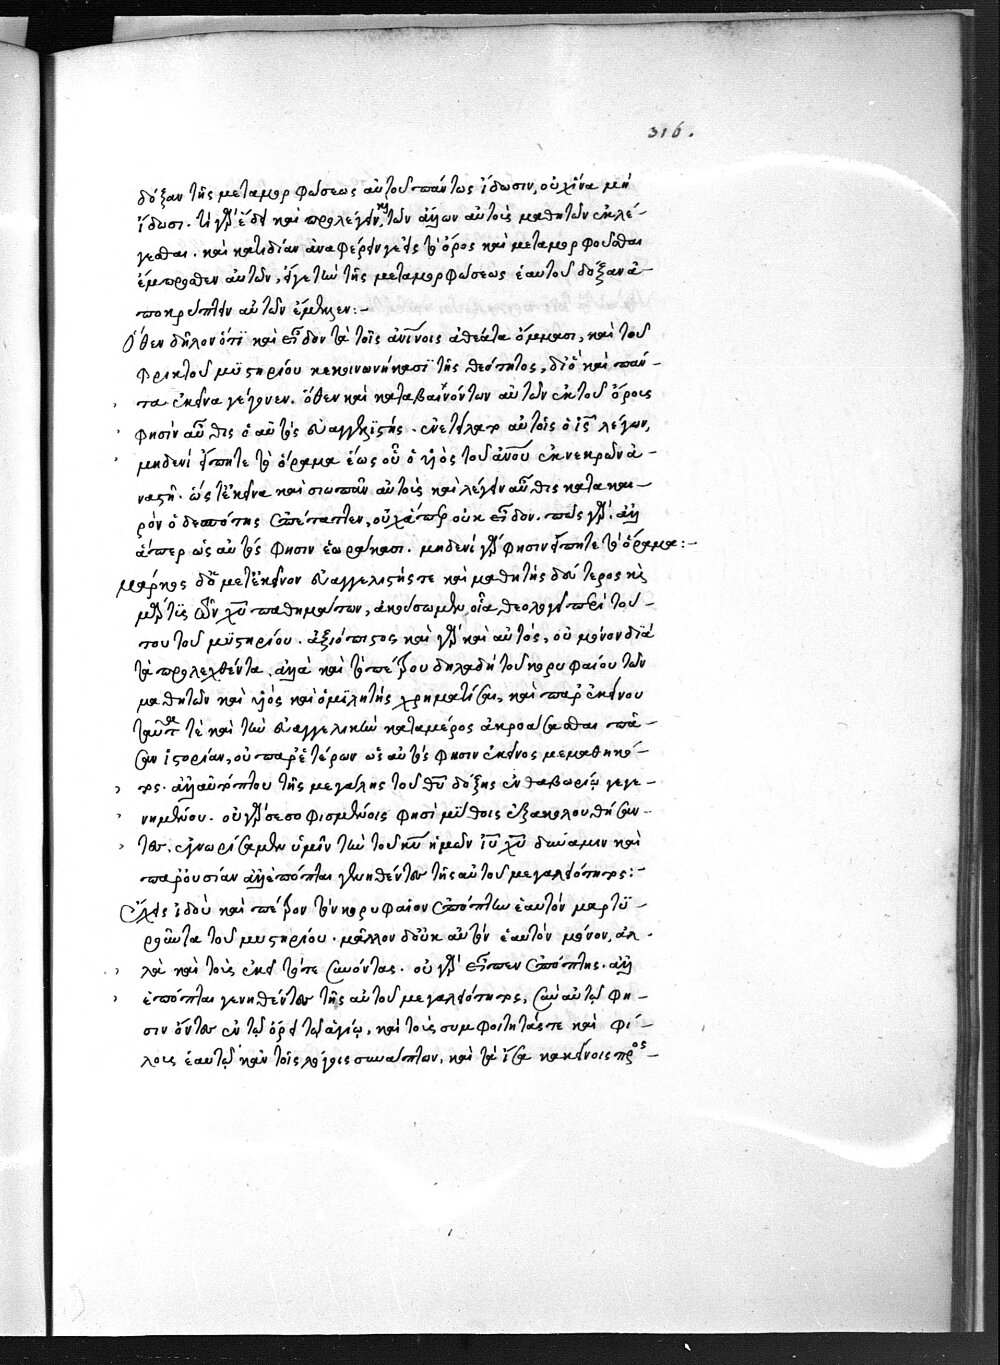 316.
δόξαν τῆς μεταμορφώσεως αὐτοῦ πάντως ἴδωσιν, οὐχ ἵνα μὴ
ἴδωσι. τί γὰρ ἔδει καὶ προλέγειν, καὶ τῶν ἄλλων αὐτοὺς μαθητῶν ἐκλέ-
γεσθαι. καὶ κατιδίαν ἀναφέρειν γε εἰς τὸ ὄρος καὶ μεταμορφοῦσθαι
ἔμπροσθεν αὐτῶν, εἴγε τὴν τῆς μεταμορφώσεως ἑαυτοῦ δόξαν ἀ-
ποκρύπτειν αὐτῶν ἔμελλεν:-
Ὅθεν δῆλον ὅτι καὶ εἶδον τὰ τοῖς ἀνίνοις ἀθέατα ὄμμασι, καὶ τοῦ
φρικτοῦ μυστηρίου κεκοινωνήκασι τῆς θεότητος, διὸ καὶ πάν-
τα ἐκεῖνα γέγονεν. ὅθεν καὶ καταβαινόντων αὐτῶν ἐκ τοῦ ὄρους
φησὶν αὖθις ὁ αὐτὸς εὐαγγελιστής. ἐνετείλατο αὐτοῖς ὁ ις λέγων,
μηδενὶ εἴπητε τὸ ὅραμα ἕως οὗ ὁ υἱὸς τοῦ ανου ἐκ νεκρῶν ἀ-
ναστῇ. ὥστ' ἐκεῖνα καὶ σιωπᾶν αὐτοὺς καὶ λέγειν αὖθις κατὰ και-
ρὸν ὁ δεσπότης ἐπέταττεν, οὐχ ἅπερ οὐκ εἶδον. πῶς γάρ. ἀλλ'
ἅπερ ὡς αὐτός φησιν ἑωράκασι. μηδενὶ γάρ φησιν εἴπητε τὸ ὅραμα:-
Μάρκος δὲ μετ' ἐκεῖνον εὐαγγελιστής τε καὶ μαθητὴς δεύτερος καὶ
μάρτυς τῶν χυ παθημάτων, ἀκούσωμεν, οἷα θεολογεῖ περὶ τού-
του τοῦ μυστηρίου. ἀξιόπιστος καὶ γὰρ καὶ αὐτός, οὐ μόνον διὰ
τὰ προλεχθέντα. ἀλλὰ καὶ τὸ πέτρου δηλαδὴ τοῦ κορυφαίου τῶν
μαθητῶν καὶ υἱὸς καὶ ὁμιλητὴς χρηματίσαι, καὶ παρ' ἐκείνου
ταῦτά τε καὶ τὴν εὐαγγελικὴν καταμέρος ἀκροάσασθαι πᾶ-
σαν ἱστορίαν, οὐ παρ' ἑτέρων ὡς αὐτός φησιν ἐκεῖνος μεμαθηκό-
τος. ἀλλ' αὐτόπτου τῆς μεγάλης τοῦ θυ δόξης ἐν θαβωρίῳ γεγε-
νημένου. οὐ γὰρ σεσοφισμένοις φησὶ μύθοις ἐξακολουθήσαν-
τες. ἐγνωρίσαμεν ὑμῖν τὴν τοῦ κυ ἡμῶν ιυ χυ δύναμιν καὶ
παρουσίαν ἀλλ' ἐπόπται γενηθέντες τῆς αὐτοῦ μεγαλειότητος:-
Ἔχεις ἰδοὺ καὶ πέτρον τὸν κορυφαῖον ἐπόπτην ἑαυτὸν μαρτυ-
ροῦντα τοῦ μυστηρίου. μᾶλλον δ' οὐκ αὐτὸν ἑαυτὸν μόνον, ἀλ-
λὰ καὶ τοὺς ἐκεῖ τότε συνόντας. οὐ γὰρ εἶπεν ἐπόπτης. ἀλλ'
ἐπόπται γενηθέντες τῆς αὐτοῦ μεγαλειότητος, σὺν αὐτῷ φη-
σιν ὄντες ἐν τῷ ὄρει τῷ ἁγίῳ, καὶ τοὺς συμφοιτητάς τε καὶ φί-
λους ἑαυτῷ κἀν τοῖς λόγοις συνάπτων, καὶ τὰ ἴσα κἀκείνοις προς-